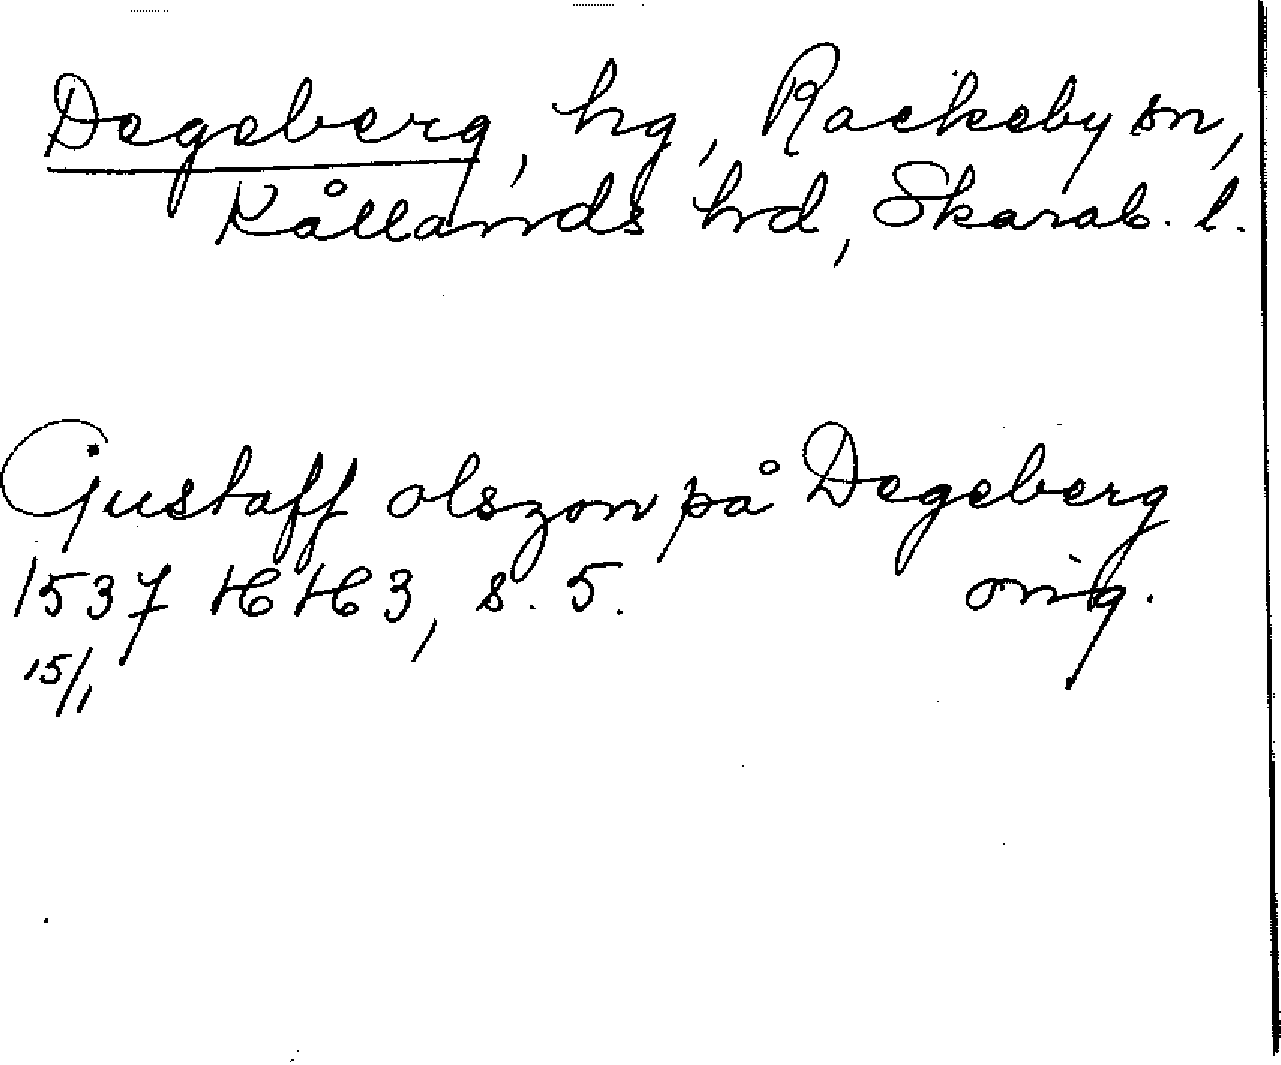 Degeberg, hg, Rackeby sn,
Kållands hd, Skarab. l.
Gustaff olszon på Degeberg
1537 HH 3, s. 5. orig.
15/1